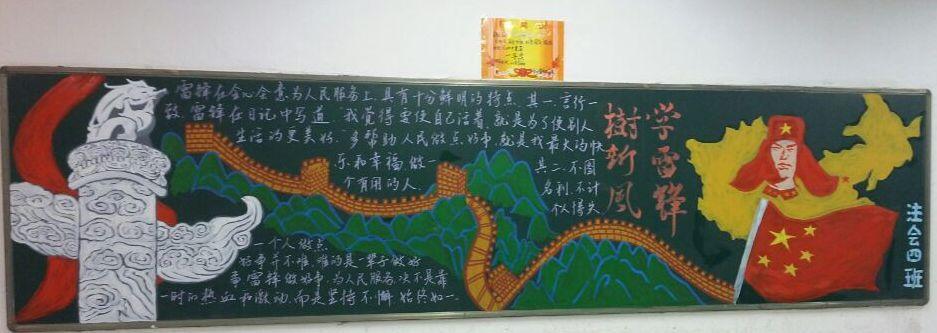 雷锋在全心全意为人民服务上,具有十分鲜明的特点。其一,言行一
致。雷锋在日记中写道"我觉得要使自己活着,就是为了使别人
生活的更美好.""多帮助人民做点好事,就是我最大的快
乐和幸福,做一
个有用的人.
其二,不图
名利,不计
个人得失
一个人做点
好事并不难,难的是一辈子做好
事.雷锋做好事,为人民服务,决不是靠
一时的热血和激动,而是坚持不懈,始终如一.
学雷锋
樹新风
注会四班